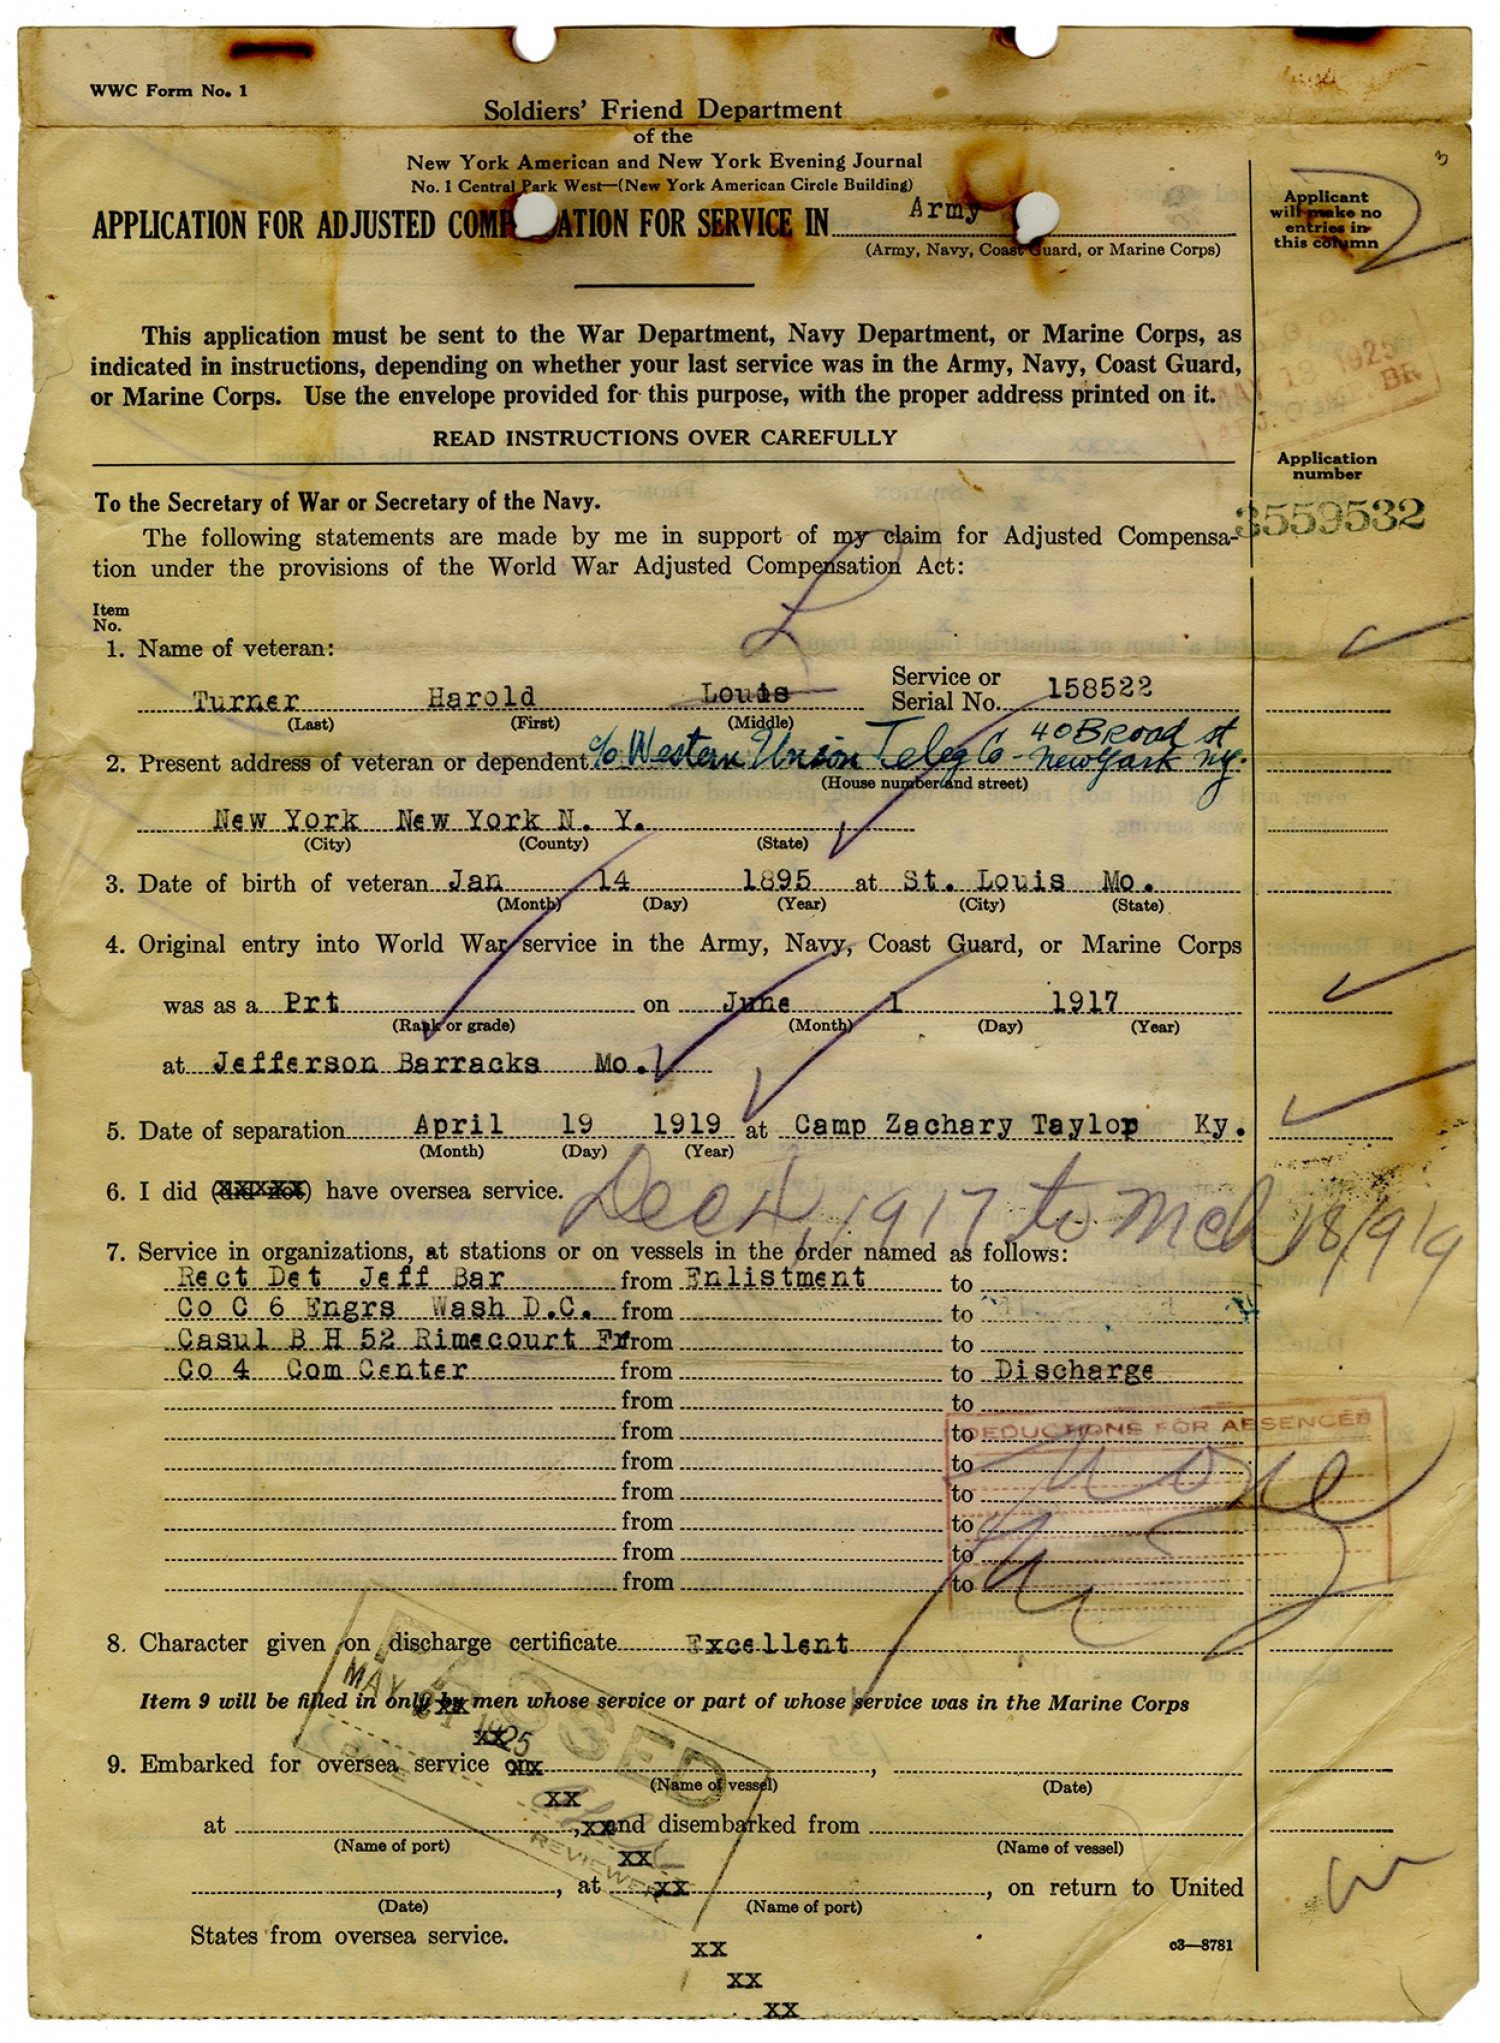 WWC Form No. 1
Soldiers' Friend Department
of the
New York American and New York Evening Journal
No. 1 Central Park West—(New York American Circle Building)
APPLICATION FOR ADJUSTED COMP ATION FOR SERVICE IN Army
(Army, Navy, Coast Guard, or Marine Corps)
Applicant
will make no
entries in
this column
3
This application must be sent to the War Department, Navy Department, or Marine Corps, as
indicated in instructions, depending on whether your last service was in the Army, Navy, Coast Guard,
or Marine Corps. Use the envelope provided for this purpose, with the proper address printed on it.
READ INSTRUCTIONS OVER CAREFULLY
MAY 1925
BR
Application
number
3559532
To the Secretary of War or Secretary of the Navy.
The following statements are made by me in support of my claim for Adjusted Compensa-
tion under the provisions of the World War Adjusted Compensation Act:
Item
No.
1. Name of veteran:
L
Turner Harold Louis Service or Serial No. 158522
(Last) (First) (Middle)
2. Present address of veteran or dependent c/o Western Union Teleg Co - 40 Broad st New York NY.
(House number and street)
New York New York N. Y.
(City) (County) (State)
3. Date of birth of veteran Jan 14 1895 at St. Louis Mo.
(Month) (Day) (Year) (City) (State)
4. Original entry into World War service in the Army, Navy, Coast Guard, or Marine Corps
was as a Prt on June 1 1917
(Rank or grade) (Month) (Day) (Year)
at Jefferson Barracks Mo.
5. Date of separation April 19 1919 at Camp Zachary Taylor Ky.
(Month) (Day) (Year)
6. I did (did not) have oversea service. Dec 4, 1917 to Mch 18/919
7. Service in organizations, at stations or on vessels in the order named as follows:
Rect Det Jeff Bar from Enlistment to
Co C 6 Engrs Wash D.C. from to
Casul B H 52 Rimecourt Fr from to
Co 4 Com Center from to Discharge
from to
from to DEDUCTIONS FOR ABSENCES
from to None
from to
from to
from to
from to
8. Character given on discharge certificate Excellent
Item 9 will be filled in only by men whose service or part of whose service was in the Marine Corps
PASSED
MAY 21 1925
REVIEWER
xx
9. Embarked for oversea service on ,
(Name of vessel) (Date)
xx
at , and disembarked from
(Name of port) (Name of vessel)
xx
, at xx , on return to United
(Date) (Name of port)
States from oversea service.
c3—8781
xx
xx
xx